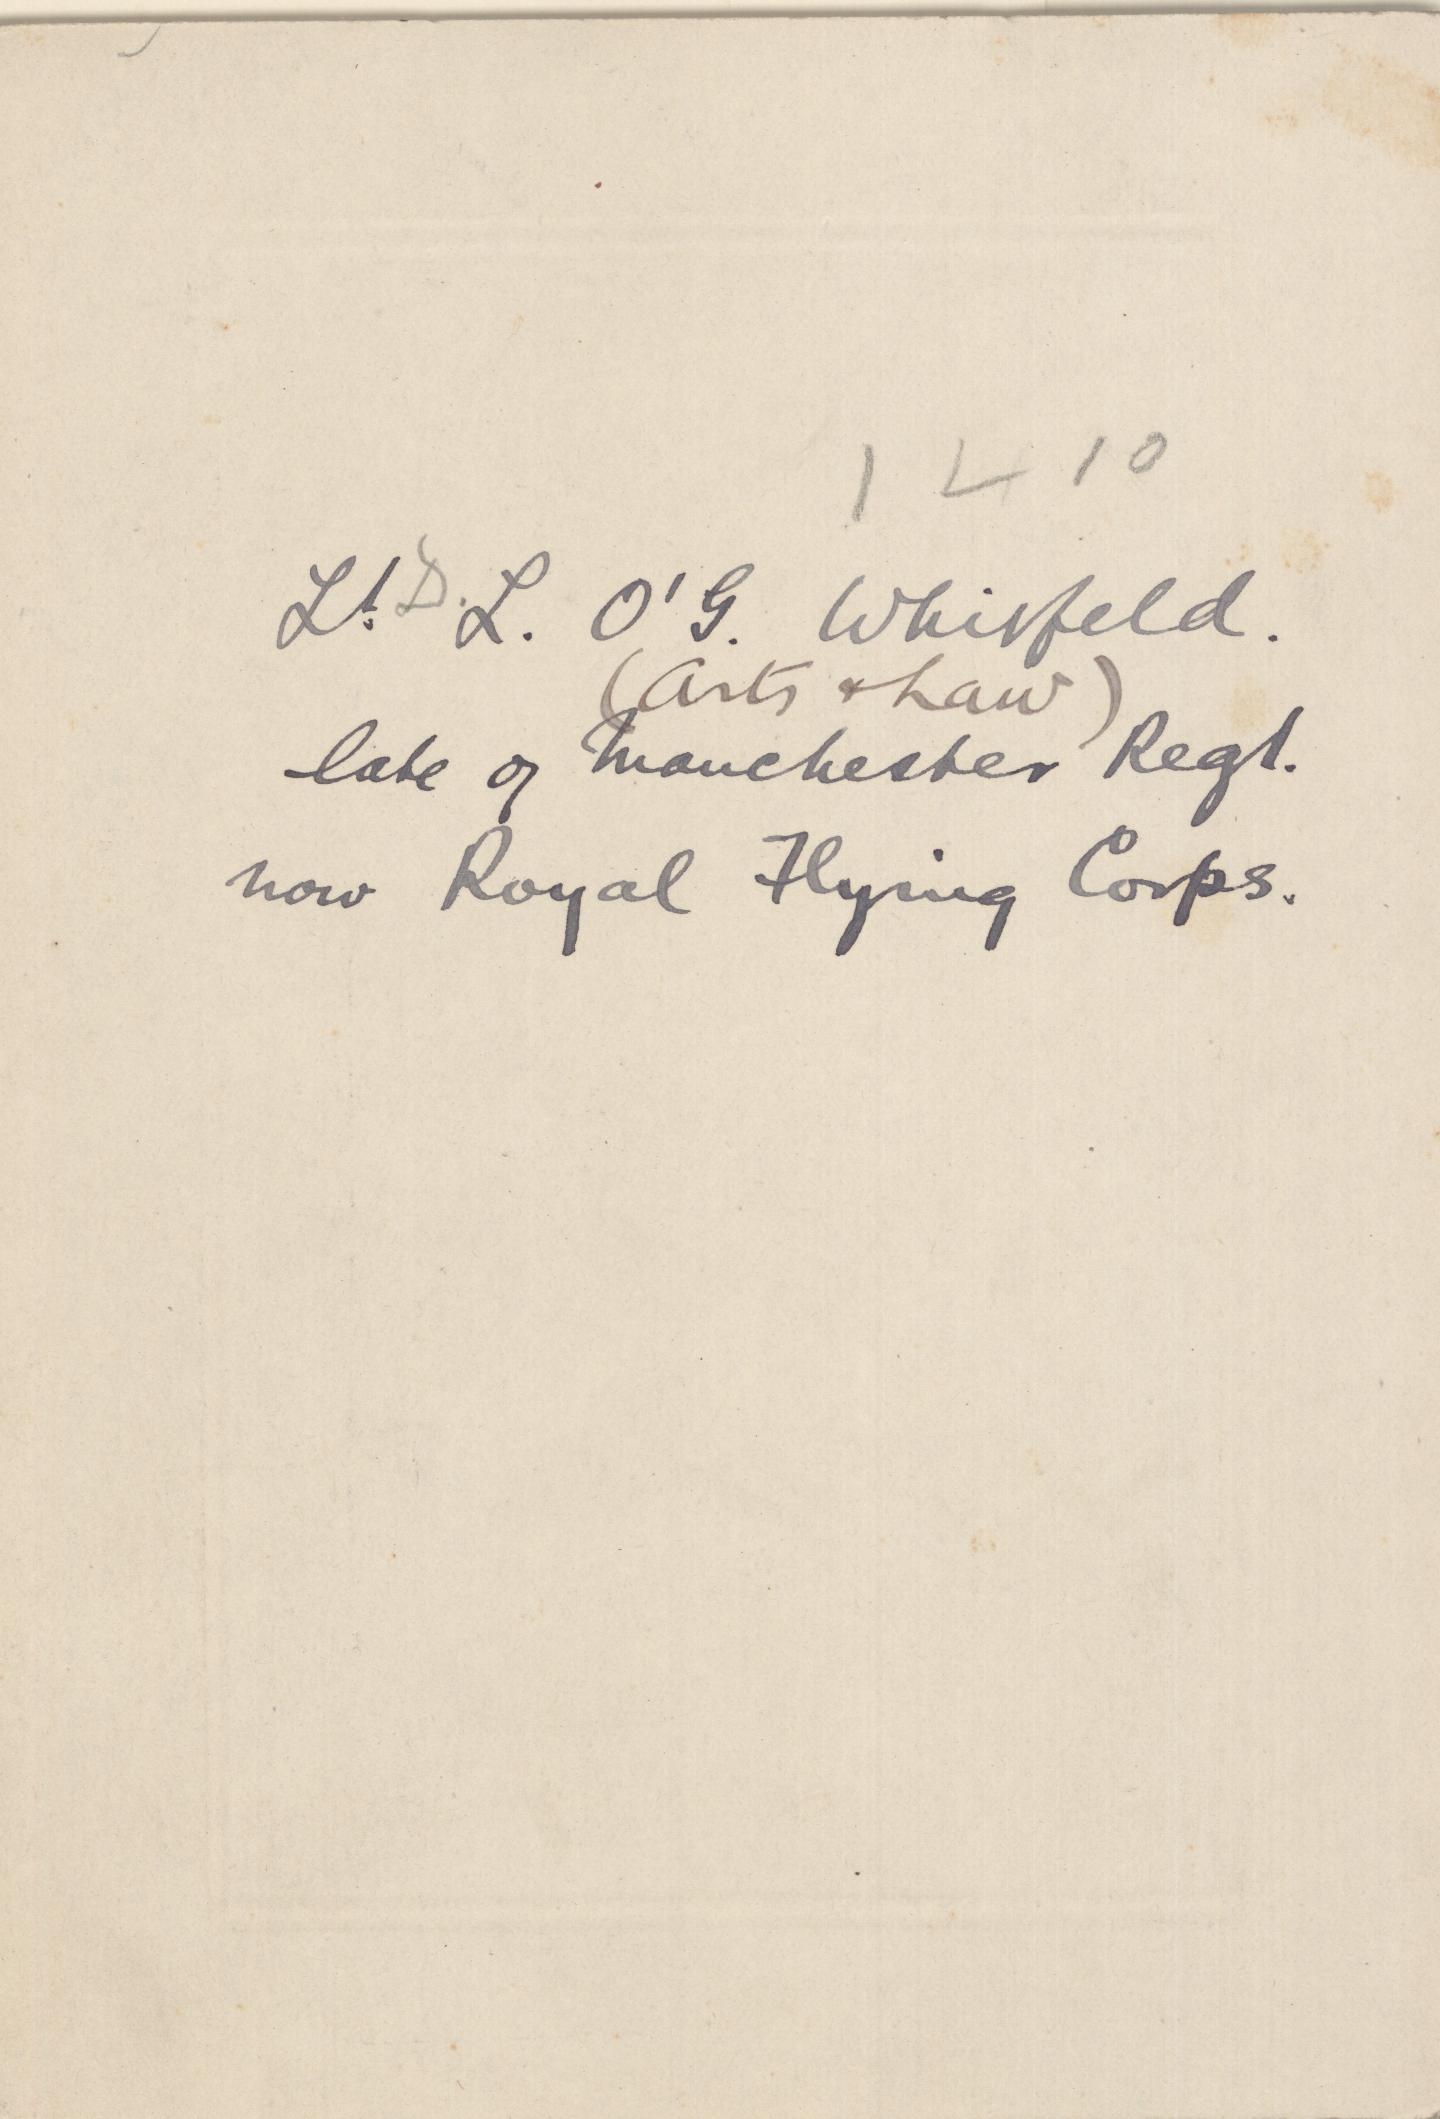 1 L 10
Lt. D. L. O'G. Whisfeld.
(Arts & Law)
late of Manchester Regt.
now Royal Flying Corps.